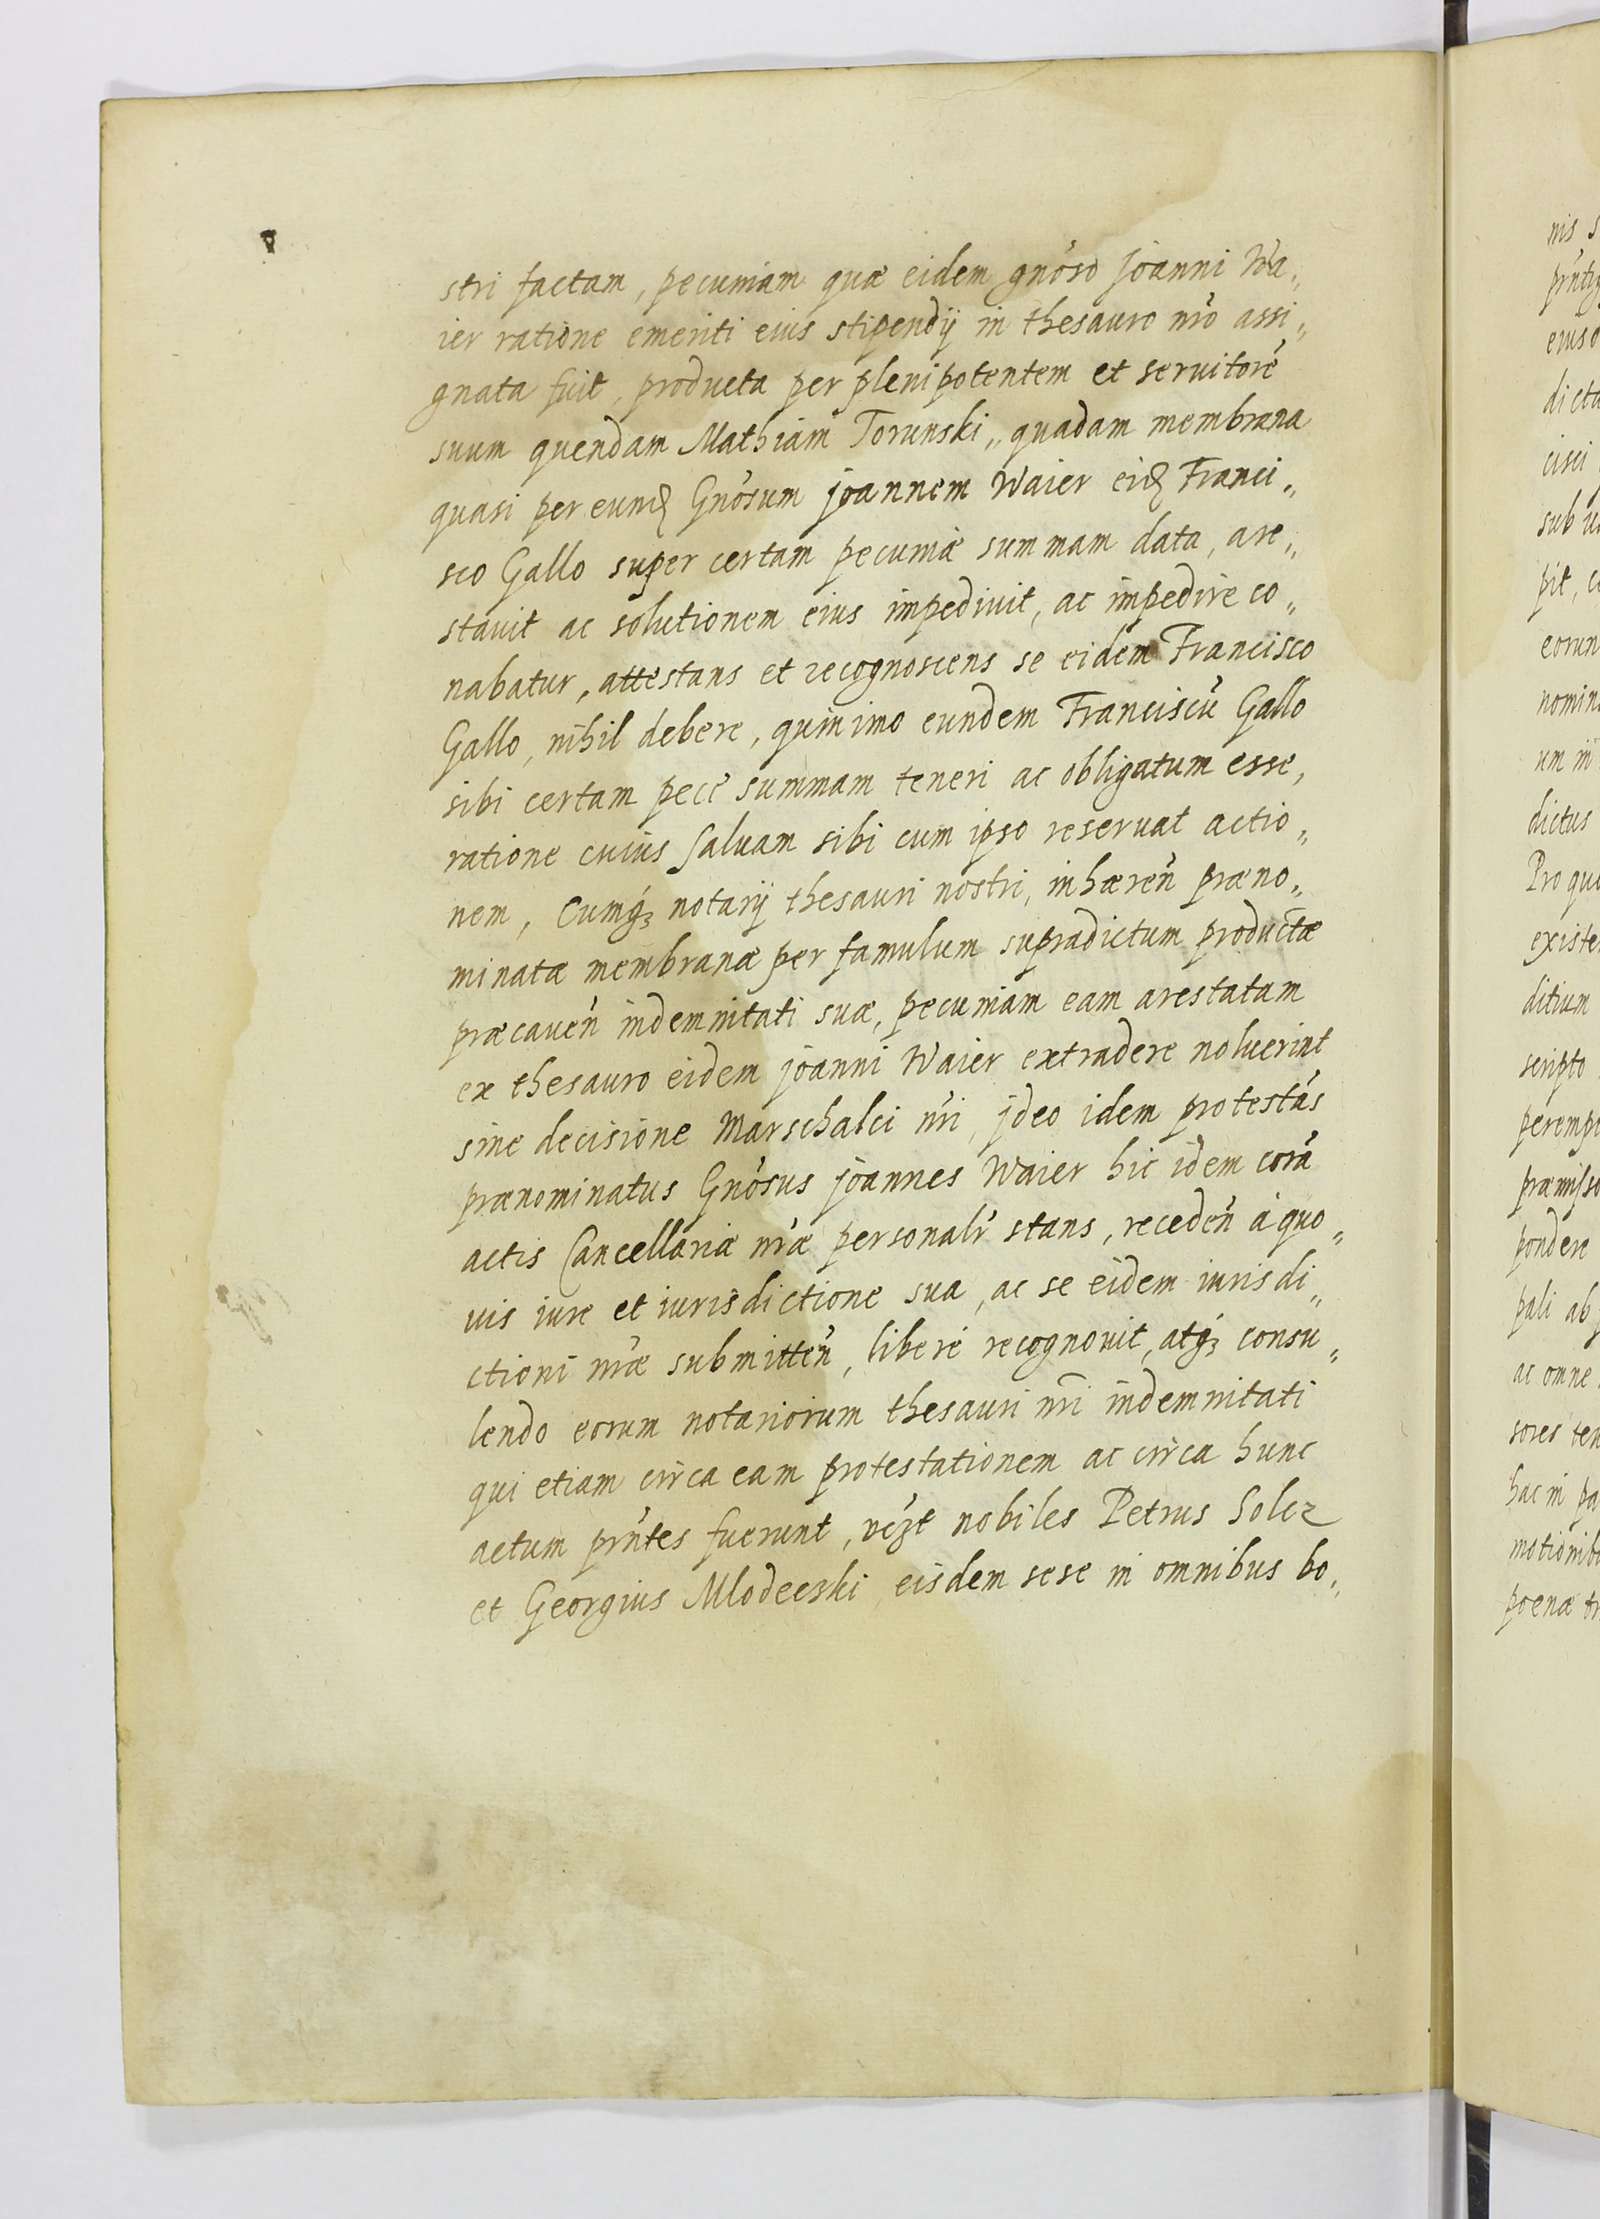 stri factam, pecuniam quæ eidem gnoso Joanni Wa„
ier ratione emeriti eius stipendij in thesauro nro assi„
gnata fuit, producta per plenipotentem et seruitorē
suum quendam Mathiam Torunski, quadam membrana
quasi per eund. Gnosum Joannem Waier eid. Franci„
sco Gallo super certam pecuniæ summam data, are„
stauit ac solutionem eius impediuit, ac impedire co„
nabatur, attestans et recognoscens se eidem Francisco
Gallo, nihil debere, quin imo eundem Franciscū Gallo
sibi certam pece summam teneri ac obligatum esse,
ratione cuius salvam sibi cum ipso reseruat actio„
nem, Cumqꝫ notarij thesauri nostri, inhæren præno„
minatæ membranæ per famulum supradictum productæ
præcauen indemnitati suæ, pecuniam eam arestatam
ex thesauro eidem Joanni Waier extradere noluerint
sine decisione Marschalci nri, Ideo idem protestās
prænominatus Gnosus Joannes Waier hic idem corā
actis Cancellariæ nræ personalr stans, receden à quo„
uis iure et iurisdictione sua, ac se eidem iurisdi„
ctioni nræ submitten, libere recognouit, atqꝫ consu„
lendo eorum notariorum thesauri nri indemnitati
qui etiam circa eam protestationem ac circa hunc
actum prntes fuerunt, vēzt nobiles Petrus Solcz
et Georgius Mlodeczki, eisdem sese in omnibus bo„
nis
eiusd
dicta
cisci
sub
pit,
eorun
nomin
um in
dictus
Pro quo
existe
ditium
scripto
peremp
præmisso
pondere
pali ab
ac omne
sores ten
hac in pa
motionib
poenæ